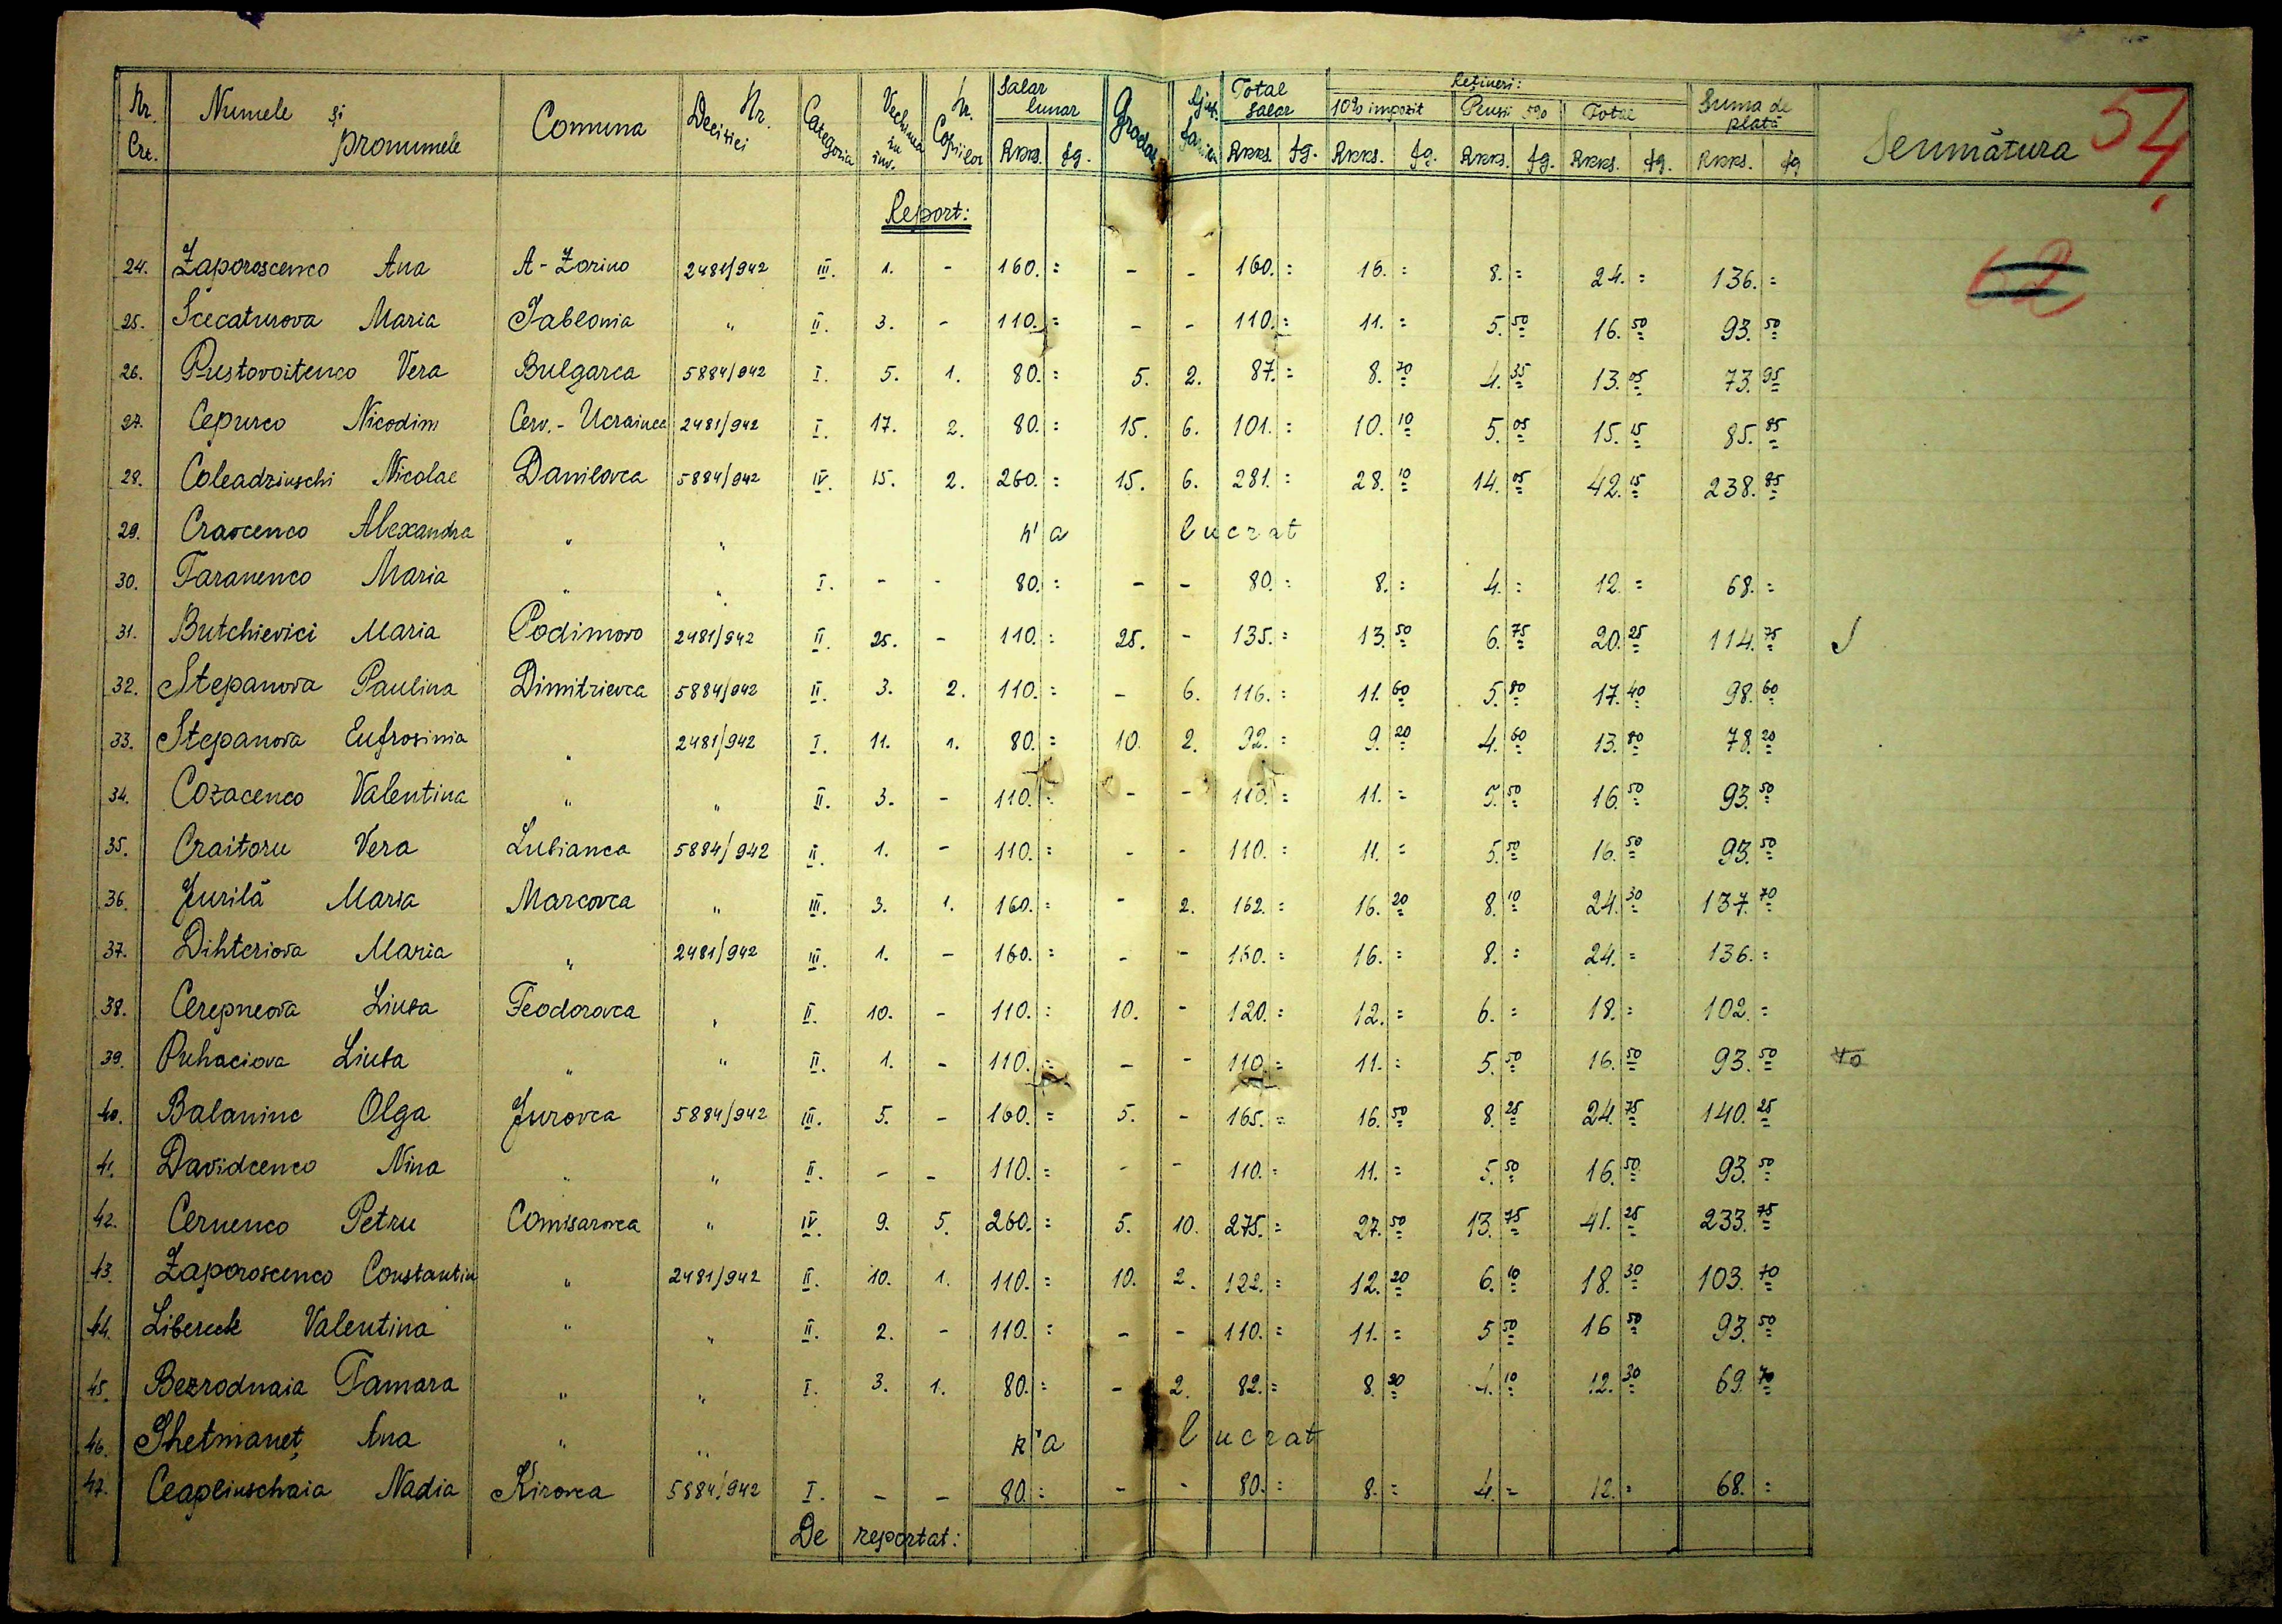 54
Nr. Crt. Numele și pronumele Comuna Nr. Deciziei Categoria Vechimea în înv. Nr. Copiilor Salar lunar Gradat. Ajut. familie Total Salar Rețineri: 10% impozit Pensii 5% Total Suma de plată Semnătura
RKKS. fg. RKKS. fg. RKKS. fg. RKKS. fg. RKKS. fg. RKKS. fg
Report:
62
24. Zaporoscenco Ana A-Zorino 2481/942 III. 1. - 160.= - - 160.= 16.= 8.= 24.= 136.=
25. Scecaturova Maria Jablonia " II. 3. - 110.= - - 110.= 11.= 5.50 16.50 93.50
26. Pustovoitenco Vera Bulgarca 5884/942 I. 5. 1. 80.= 5. 2. 87.= 8.70 4.35 13.05 73.95
27. Cepurco Nicodim Cerv.-Ucrainca 2481/942 I. 17. 2. 80.= 15. 6. 101.= 10.10 5.05 15.15 85.85
28. Coleadzinschi Nicolae Danilovca 5884/942 IV. 15. 2. 260.= 15. 6. 281.= 28.10 14.05 42.15 238.85
29. Cravcenco Alexandra " " n'a lucrat
30. Taranenco Maria " " I. - - 80.= - - 80.= 8.= 4.= 12.= 68.=
31. Butchievici Maria Podimovo 2481/942 II. 25. - 110.= 25. - 135.= 13.50 6.75 20.25 114.75
32. Stepanova Paulina Dimitrievca 5884/942 II. 3. 2. 110.= - 6. 116.= 11.60 5.80 17.40 98.60
33. Stepanova Eufrosinia " 2481/942 I. 11. 1. 80.= 10. 2. 92.= 9.20 4.60 13.80 78.20
34. Cozacenco Valentina " " II. 3. - 110.= - - 110.= 11.= 5.50 16.50 93.50
35. Craitoru Vera Lubianca 5884/942 II. 1. - 110.= - - 110.= 11.= 5.50 16.50 93.50
36. Jurilă Maria Marcovca " III. 3. 1. 160.= - 2. 162.= 16.20 8.10 24.30 137.70
37. Dihteriova Maria " 2481/942 III. 1. - 160.= - - 160.= 16.= 8.= 24.= 136.=
38. Cerepneova Liuba Feodorovca " II. 10. - 110.= 10. - 120.= 12.= 6.= 18.= 102.=
39. Puhaciova Liuba " " II. 1. - 110.= - - 110.= 11.= 5.50 16.50 93.50
40. Balaninc Olga Jurovca 5884/942 III. 5. - 160.= 5. - 165.= 16.50 8.25 24.75 140.25
41. Davidcenco Nina " " II. - - 110.= - - 110.= 11.= 5.50 16.50 93.50
42. Cernenco Petru Comisarovca " IV. 9. 5. 260.= 5. 10. 275.= 27.50 13.75 41.25 233.75
43. Zaporoscenco Constantin " 2481/942 II. 10. 1. 110.= 10. 2. 122.= 12.20 6.10 18.30 103.70
44. Valentina " " II. 2. - 110.= - - 110.= 11.= 5 50 16 50 93.50
45. Bezrodnaia Tamara " " I. 3. 1. 80.= - 2. 82.= 8.20 4.10 12.30 69.70
46. Ghetmaneț Ana " " n'a lucrat
47. Ceaplinschaia Nadia Kirovca 5884/942 I. - - 80.= - - 80.= 8.= 4.= 12.= 68.=
De reportat: